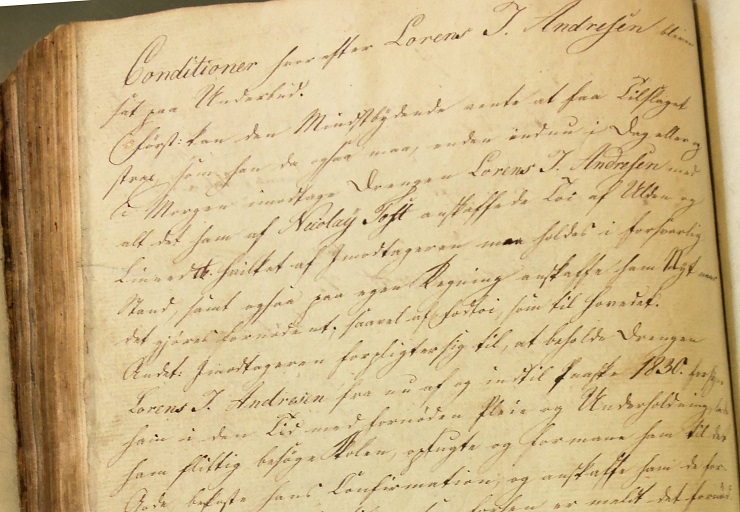 Conditioner hvorefter Lorens J. Andresen bliver
sat paa Underbud.
Först: kan den Mindstbydende vente at faa Tilslaget
strax, som han da ogsaa maa, enden indnu i Dag eller og
i Morgen imodtage Drengen Lorens J. Andresen med
alt det ham af Nicolaÿ Toft anskaffede Töi af Ulden og
Linned hvilket af Imodtageren maa holdes i forsvarlig
Stand, samt ogsaa paa egen Regning anskaffe ham Nÿt naar
det gjöres fornödent, saavel af Fodtöi, som til Hovedet.
Andet: Imodtageren forpligter sig til, at beholde Drengen
Lorens J. Andresen fra nu af og indtil Paaske 1836. forsÿne
ham i den Tid med fornöden Pleie og Underholdning, lade
ham flittig besöge Skolen, opfugte og formane ham til det
Gode bekoste hans Confirmation, og anskaffe ham de for-
er maatte det